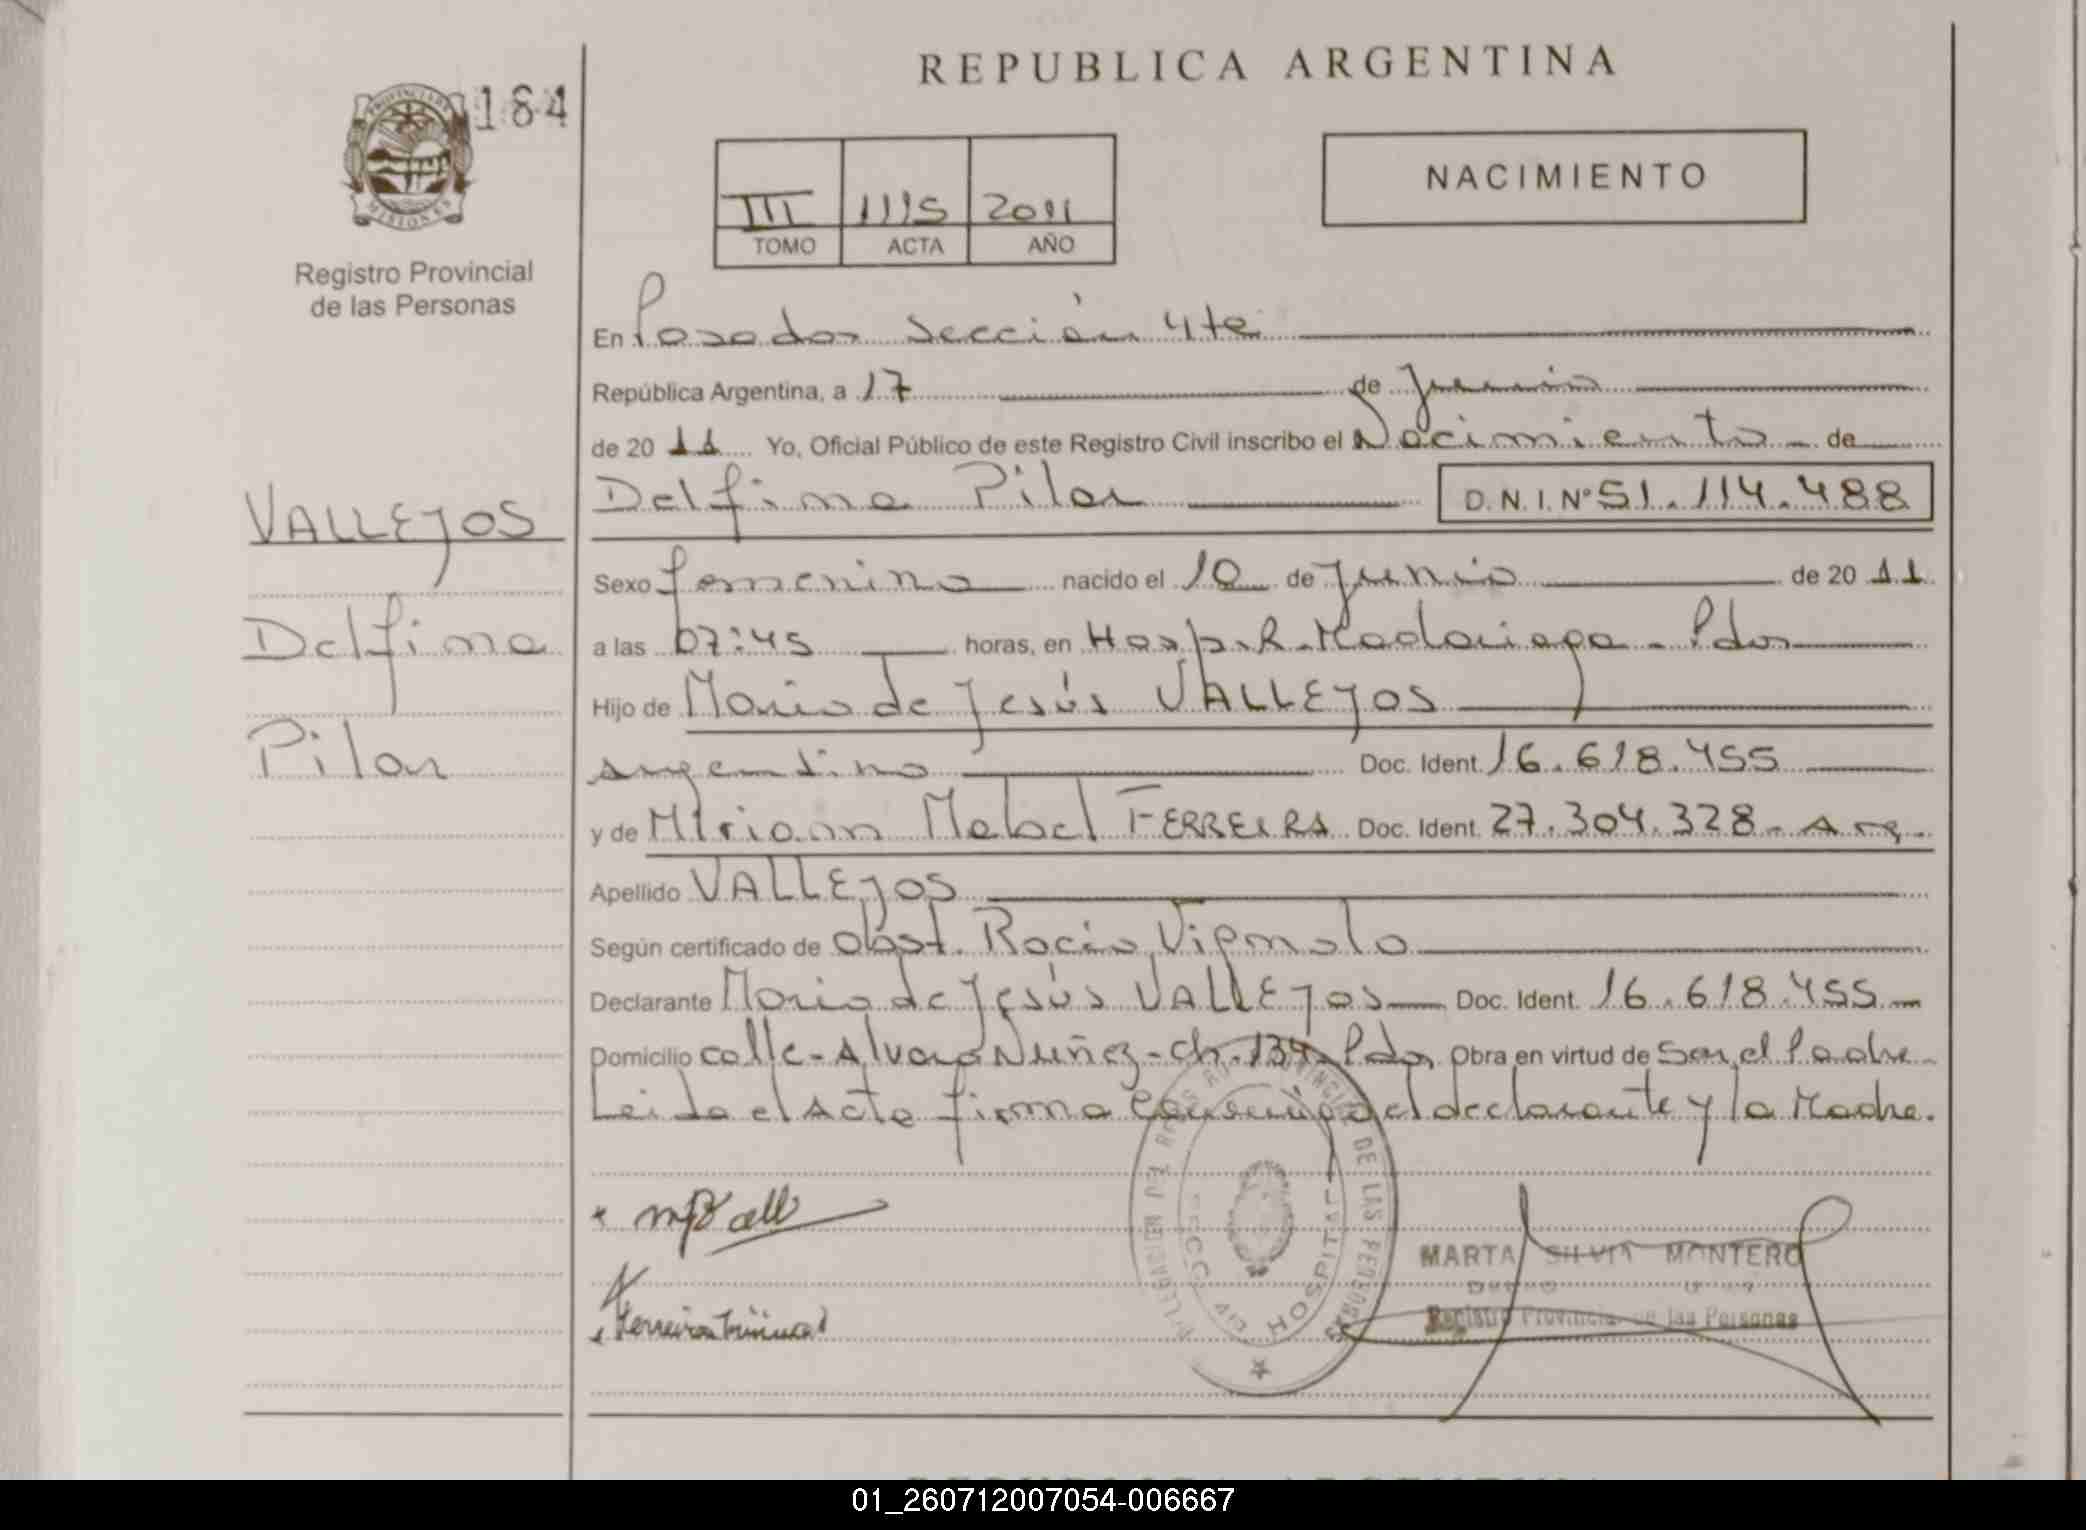 REPUBLICA ARGENTINA
184
PROVINCIA DE MISIONES
Registro Provincial
de las Personas
III 1115 2011
TOMO ACTA AÑO
NACIMIENTO
En Posadas Sección 4ta
República Argentina, a 17 de Junio
de 2011 Yo, Oficial Público de este Registro Civil inscribo el Nacimiento de
Delfina Pilar D.N.I.Nº 51.114.488
VALLEJOS
Delfina
Pilar
Sexo femenino nacido el 10 de Junio de 2011
a las 07:45 horas, en Hosp. R. Madariaga - Pdas
Hijo de Mario de Jesús VALLEJOS
argentino Doc. Ident. 16.618.455
y de Miriam Mabel FERREIRA Doc. Ident. 27.304.328 - Arg.
Apellido VALLEJOS
Según certificado de obst. Rocío Vignolo
Declarante Mario de Jesús VALLEJOS Doc. Ident. 16.618.455
Domicilio calle - Alvaro Nuñez - ch. 134 Pdas Obra en virtud de Ser el Padre
Leida el Acta firma conmigo el declarante y la Madre.
DELEGACION DEL REGISTRO PROVINCIAL DE LAS PERSONAS
HOSPITAL
MARTA SILVIA MONTERO
Registro Provincial de las Personas
01_260712007054-006667